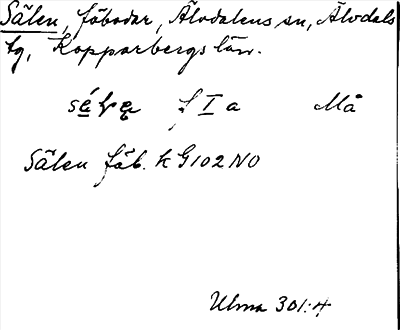 Sälen, fäbodar, Älvdalens sn, Älvdals
tg, Kopparbergs län.
f I a Må
Sälen fäb. k G102 NO
Ulma 301:4